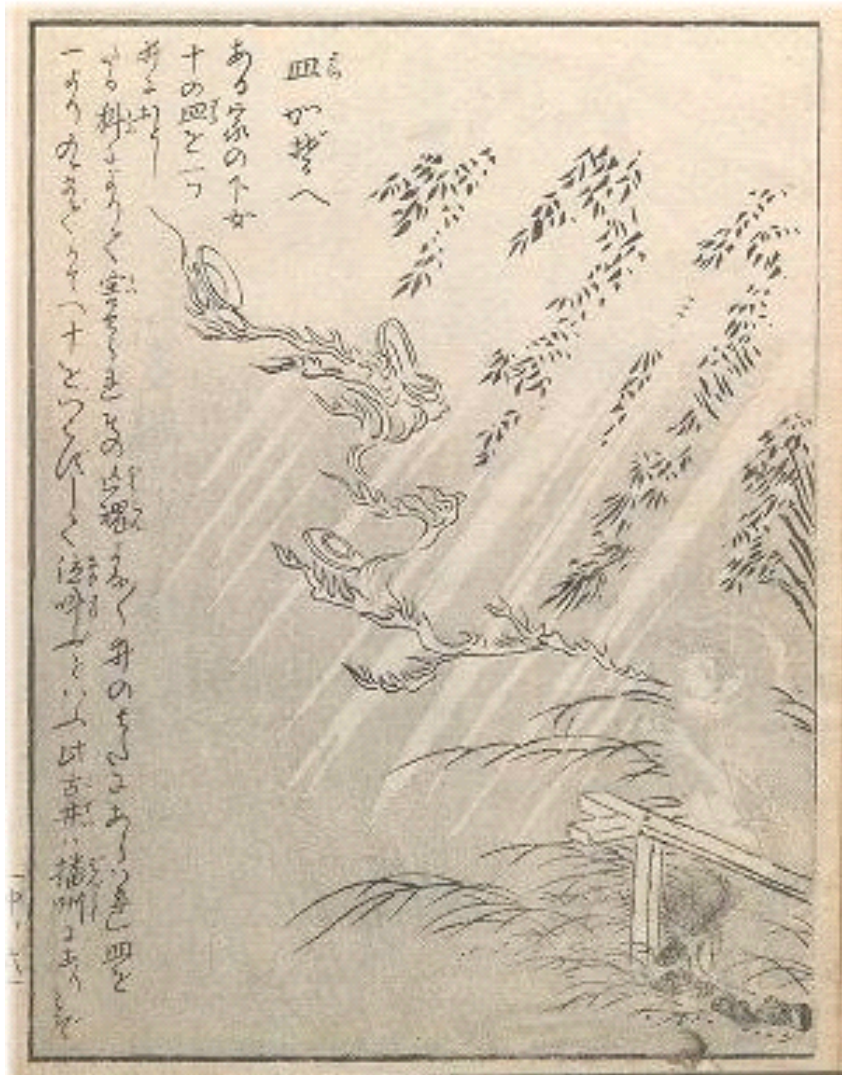 皿かぞへ
ある家の下女
十の皿を一つ
井におとし
たる科によりて害せられその亡魂よな〱井のはたにあらはれ皿を
一より九までかぞへ十をいはずして泣叫ぶといふ此古井は播州にありとぞ